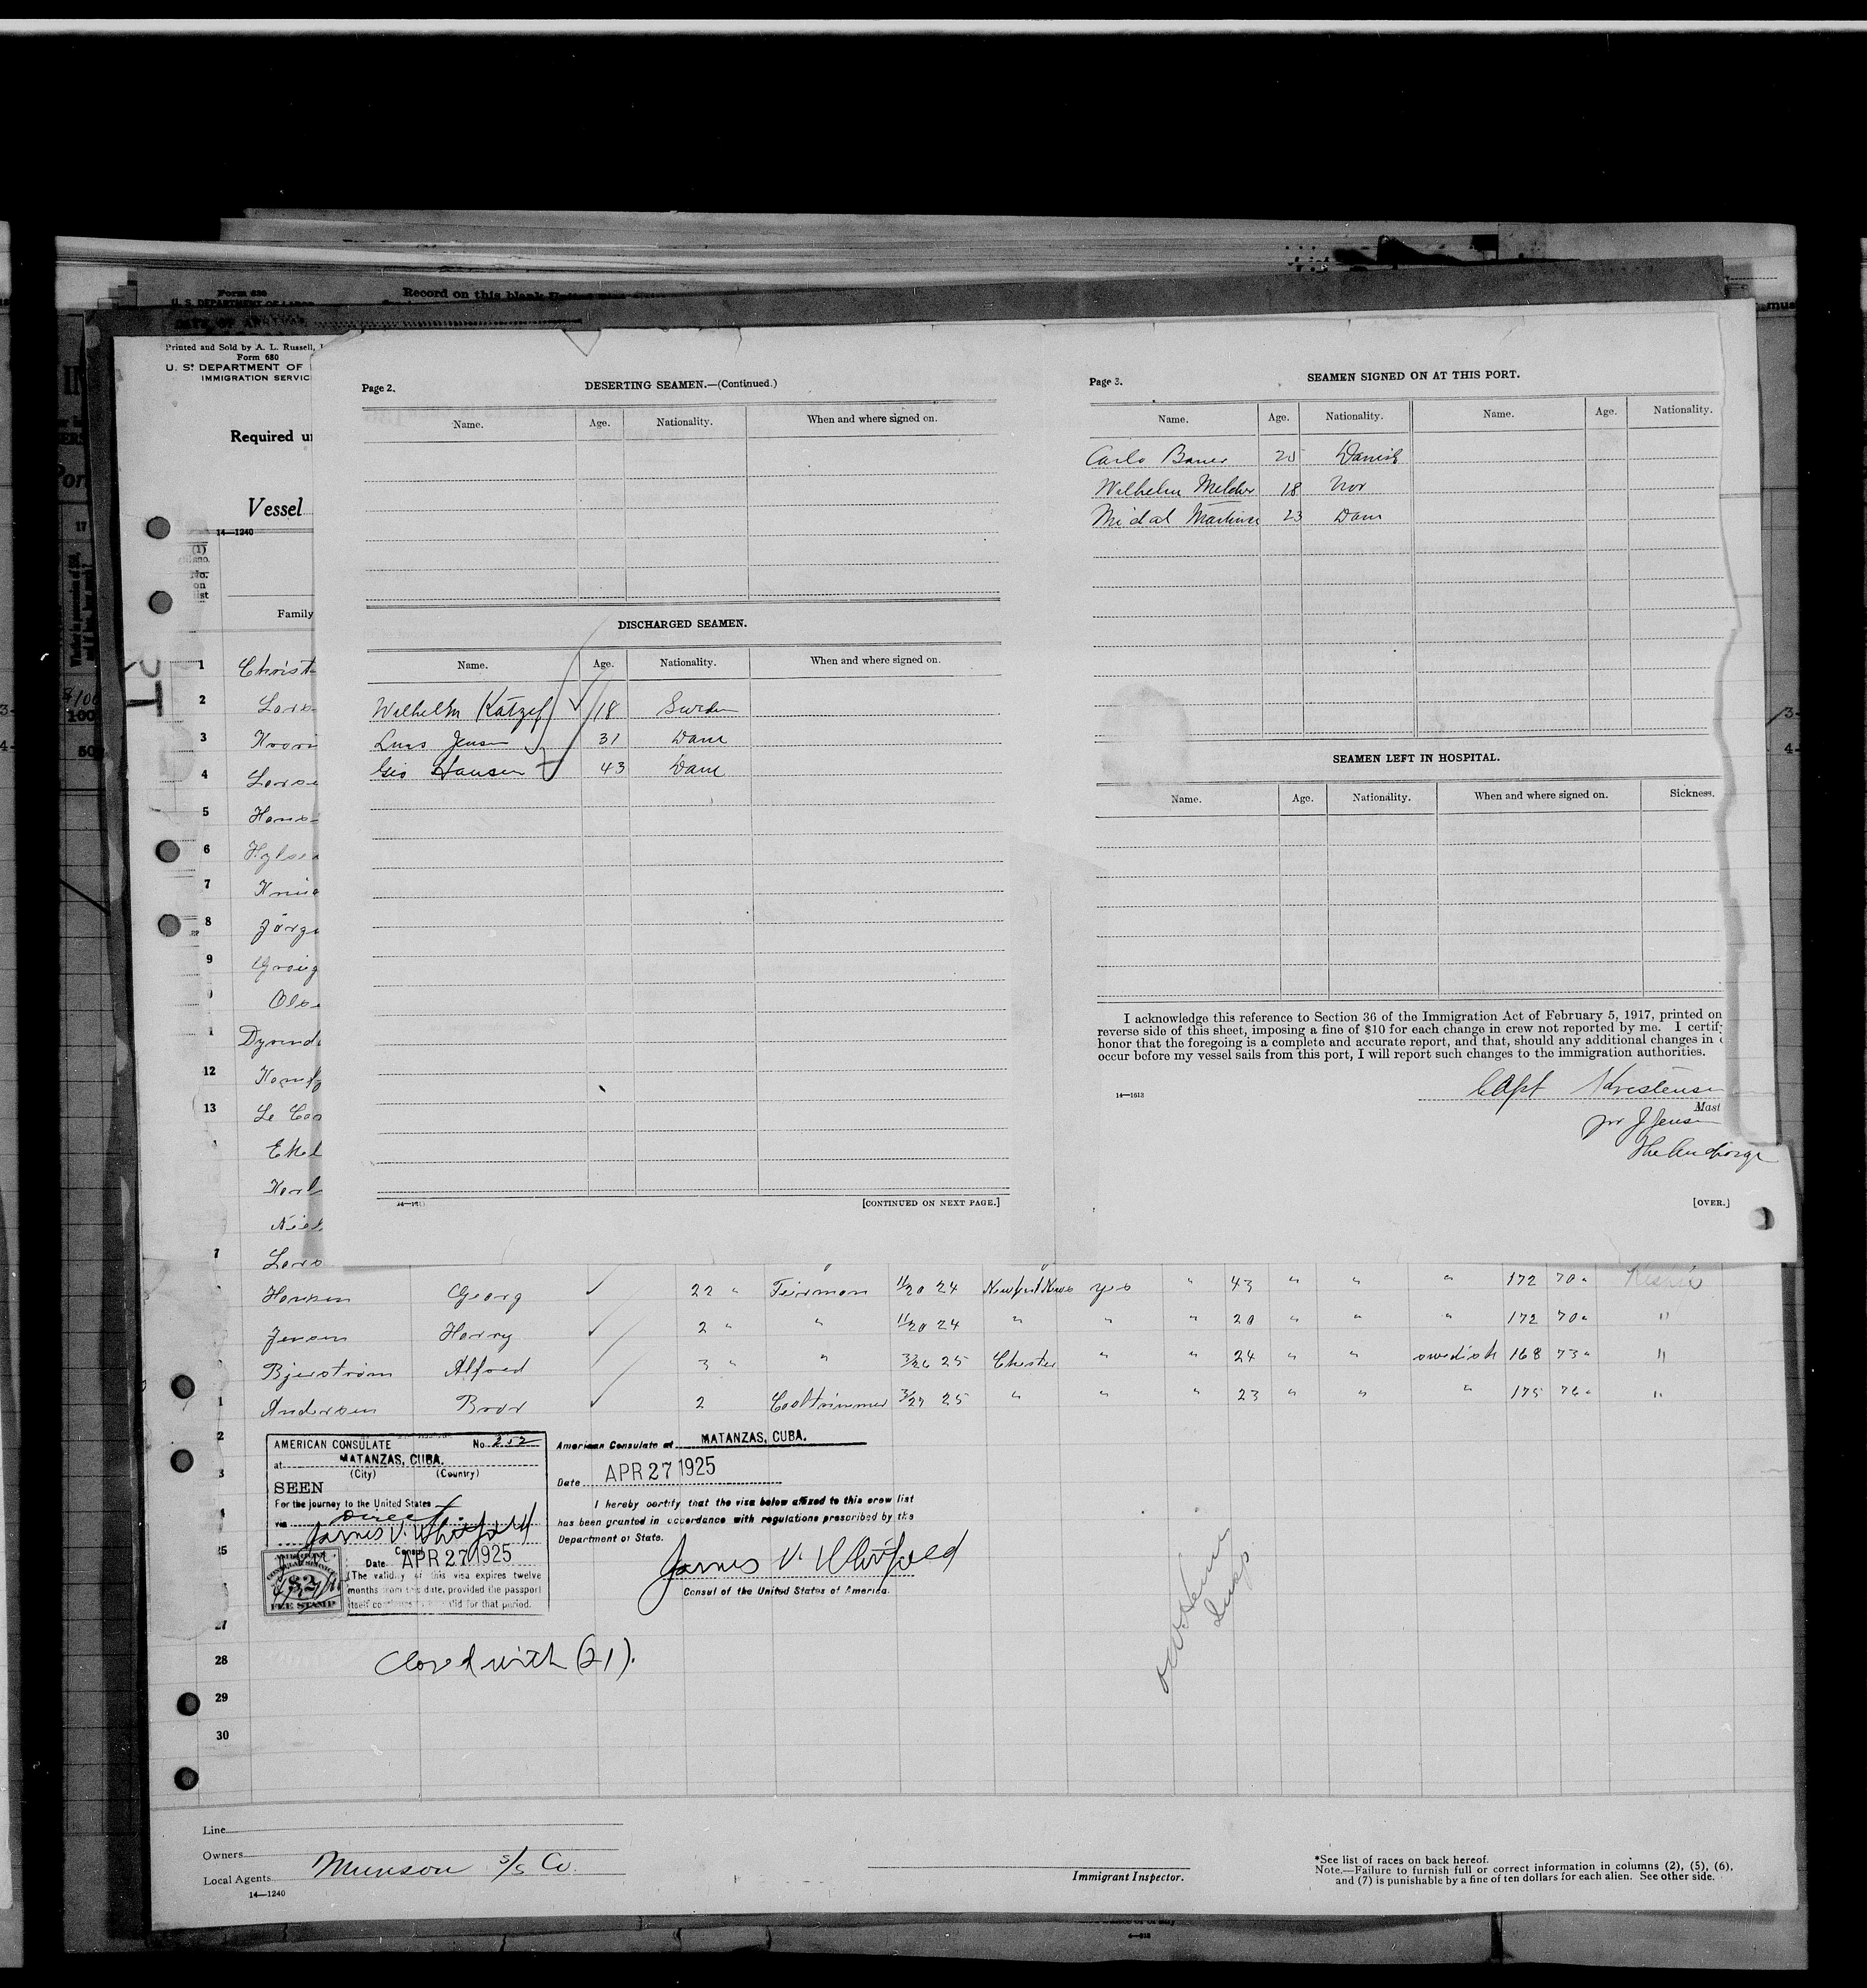 Form 680
U. S. DEPARTMENT OF LABOR
Record on this blank United
Printed and Sold by A. L. Russell,
Form 680
U. S. DEPARTMENT OF
IMMIGRATION SERVIC
Required u
Vessel
14—1240
(1)
No.
on
list
Family
1 Christ
2 Lars
3
4 Larse
5 Hans
6
7 Knud
8 Jörge
9
Ols
12
13 Le
Ekel
Karl
Niel
7 Lars
Page 2.
DESERTING SEAMEN.—(Continued.)
Name. Age. Nationality. When and where signed on.
DISCHARGED SEAMEN.
Name. Age. Nationality. When and where signed on.
Wilhelm Katzef 18 Sweden
Lars Jensen 31 Dane
Geo Hansen 43 Dane
14—1613
[CONTINUED ON NEXT PAGE.]
Page 3.
SEAMEN SIGNED ON AT THIS PORT.
Name. Age. Nationality. Name. Age. Nationality.
Carlo Bauer 20 Danish
Wilhelm Melcher 18 Nor
Midal Martinsen 23 Dane
SEAMEN LEFT IN HOSPITAL.
Name. Age. Nationality. When and where signed on. Sickness.
I acknowledge this reference to Section 36 of the Immigration Act of February 5, 1917, printed on
reverse side of this sheet, imposing a fine of $10 for each change in crew not reported by me. I certif
honor that the foregoing is a complete and accurate report, and that, should any additional changes in
occur before my vessel sails from this port, I will report such changes to the immigration authorities.
Capt Kristensen
14—1613
Mast
pr J Jensen
[OVER.]
Hansen Georg 22 " Feirman 11/20 24 Newport News yes " 43 " " " 172 70 "
Jensen Harry 2 " " 11/20 24 " " " 20 " " " 172 70 " "
Bjerström Alfred 3 " " 3/26 25 Chester " " 24 " " swedish 168 73 " "
1 Andersen Bror 2 Coaltrimmer 3/27 25 " " " 23 " " " 175 76 " "
2
3
AMERICAN CONSULATE No. 252
at MATANZAS, CUBA.
(City) (Country)
SEEN
For the journey to the United States
via Direct
James V. Whitfield
Consul
Date APR 27 1925
The validity of this visa expires twelve
months from this date, provided the passport
itself continues to be valid for that period.
$2
FEE STAMP
American Consulate at MATANZAS, CUBA.
Date APR 27 1925
I hereby certify that the visa below affixed to this crew list
has been granted in accordance with regulations prescribed by the
Department of State.
James V. Whitfield
Consul of the United States of America.
25
27
28
Closed with (21).
29
30
Line
Owners
Local Agents Munson S/S Co.
14—1240
Immigrant Inspector.
*See list of races on back hereof.
Note.—Failure to furnish full or correct information in columns (2), (5), (6),
and (7) is punishable by a fine of ten dollars for each alien. See other side.